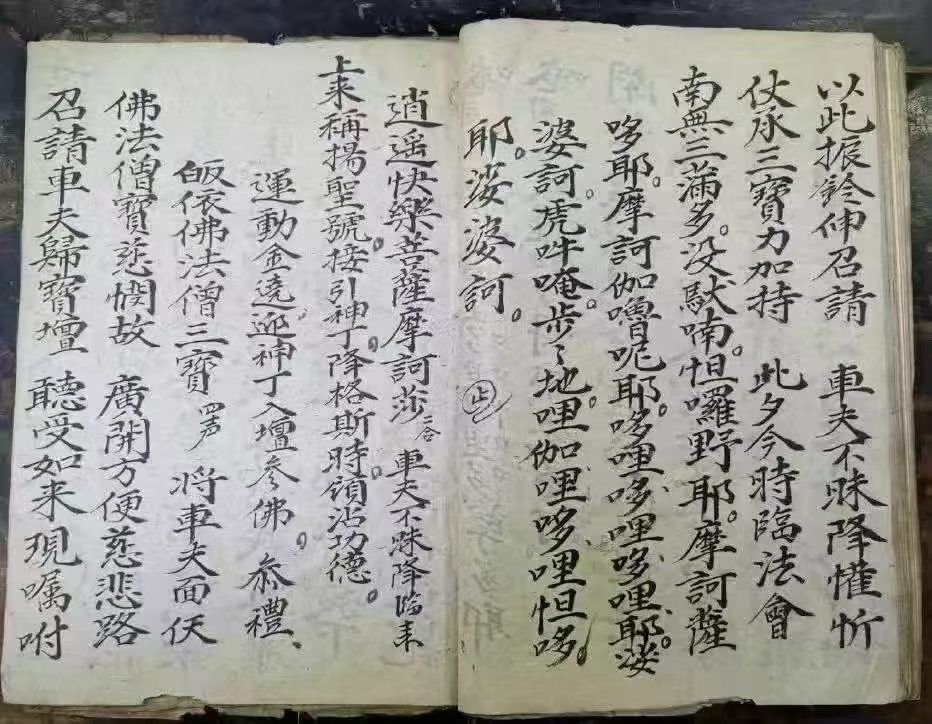 以此振鈴伸召請　車夫不昧降懽忻
仗承三寶力加持　此夕今時臨法會
南無三滿多。没馱喃。怛囉野耶。摩訶薩
哆耶。摩訶伽嚕呢耶。哆哩哆哩哆哩耶。娑
婆訶。虎吽唵。步々地哩。伽哩哆哩怛哆。
耶。娑婆訶。㊣
逍遥快樂菩薩摩訶莎二合　車夫不昧降臨来
上来稱揚聖號。接引神丁。降格斯時。領沾功德。
運動金遶迎神丁入壇参佛。恭禮、
皈依佛法僧三寶四声　将車夫面仸
佛法僧寶慈憫故　廣開方便慈悲路
召請車夫歸寶壇　聽受如来現囑咐